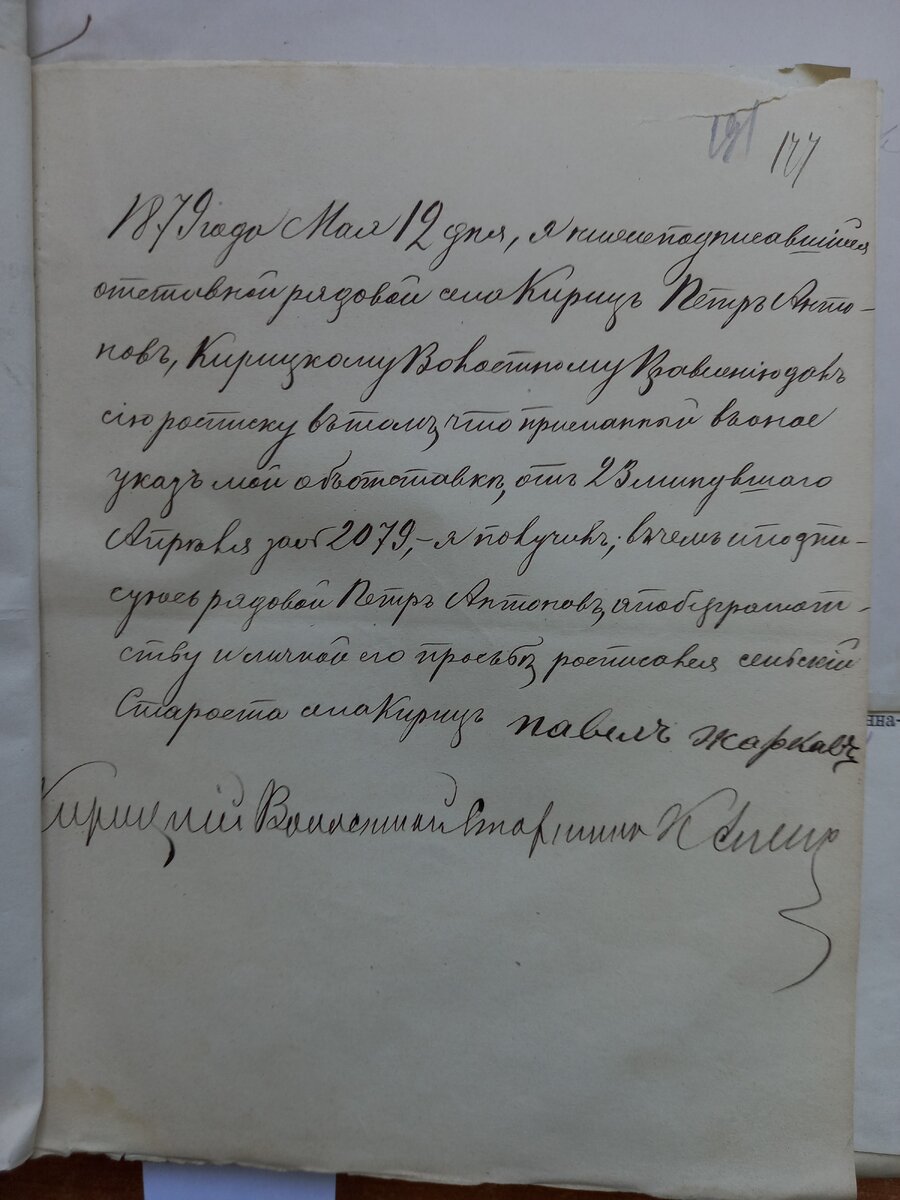 191 177
1879 года Мая 12 дня, я нижеподписавшійся
отставной рядовой села Кирицъ Петръ Анто-
новъ, Кирицкому Волостному Правленію далъ
сію росписку въ томъ, что присланный въ оное
указъ мой объ отставкѣ, отъ 23 минувшаго
Апрѣля за № 2079, - я получилъ; въ чемъ и подпи-
суюсь рядовой Петръ Антоновъ, а по безграмот-
ству и личной его прозьбѣ росписался сельскій
Староста села Кирицъ Павелъ Жаркавъ
Кирицкий Волостной Старшина
нна-